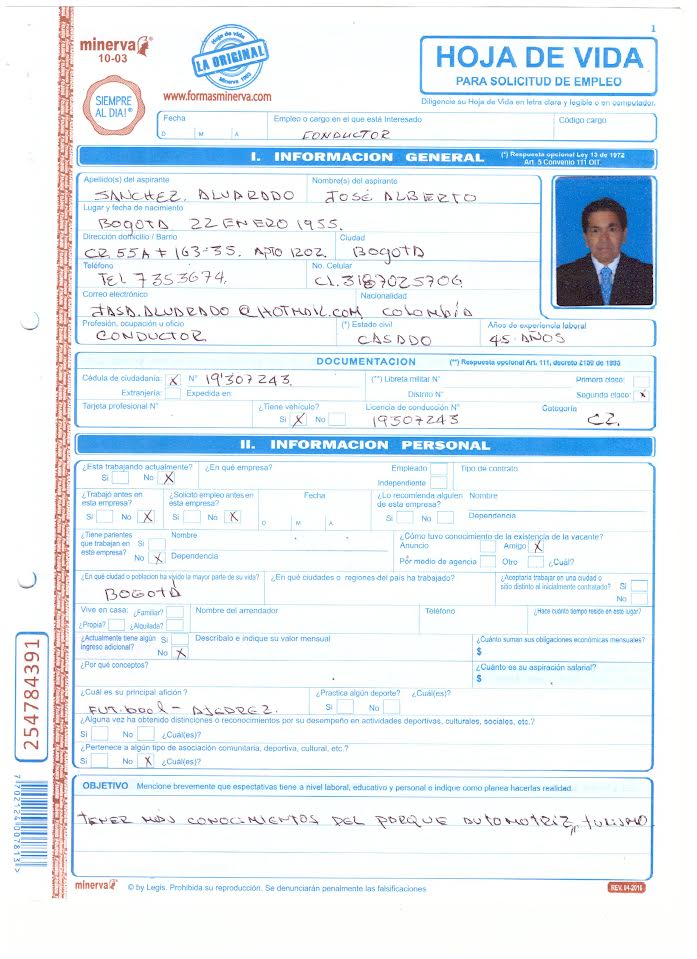 1
minerva
10-03
Hoja de vida
LA ORIGINAL
Minerva 1963
SIEMPRE AL DIA!
www.formasminerva.com
HOJA DE VIDA
PARA SOLICITUD DE EMPLEO
Diligencie su Hoja de Vida en letra clara y legible o en computador.
Fecha Empleo o cargo en el que está Interesado Código cargo
D M A CONDUCTOR
I. INFORMACION GENERAL (*) Respuesta opcional Ley 13 de 1972 Art. 5 Convenio 111 OIT.
Apellido(s) del aspirante Nombre(s) del aspirante
SANCHEZ ALVARADO JOSÉ ALBERTO
Lugar y fecha de nacimiento
BOGOTA 22 ENERO 1955.
Dirección domicilio / Barrio Ciudad
CR 55A # 163-35. APTO 1202. BOGOTA
Teléfono No. Celular
TEL 7353674. CL. 3187025706
Correo electrónico Nacionalidad
JASA.ALVARADO@HOTMAIL.COM COLOMBIA
Profesión, ocupación u oficio (*) Estado civil Años de experiencia laboral
CONDUCTOR CASADO 45 AÑOS
DOCUMENTACION (**) Respuesta opcional Art. 111, decreto 2150 de 1995
Cédula de ciudadanía: X N° 19'307243. (**) Libreta militar N° Primera clase:
Extranjería: Expedida en: Distrito N° Segunda clase: X
Tarjeta profesional N° ¿Tiene vehículo? Licencia de conducción N° Categoría
Si X No 19307243 C2.
II. INFORMACION PERSONAL
¿Esta trabajando actualmente? ¿En qué empresa? Empleado Tipo de contrato
Si No X Independiente
¿Trabajó antes en esta empresa? ¿Solicitó empleo antes en esta empresa? Fecha ¿Lo recomienda alguien de esta empresa? Nombre
Si No X Si No X D M A Si No Dependencia
¿Tiene parientes que trabajan en esté empresa? Si No X Nombre ¿Cómo tuvo conocimiento de la existencia de la vacante?
Anuncio Amigo X
Dependencia Por medio de agencia Otro ¿Cuál?
¿En qué ciudad o poblacion ha vivido la mayor parte de su vida? ¿En qué ciudades o regiones del país ha trabajado? ¿Aceptaría trabajar en una ciudad o sitio distinto al inicialmente contratado? Si No
BOGOTÁ
Vive en casa: ¿Familiar? Nombre del arrendador Teléfono ¿Hace cuánto tiempo reside en este lugar?
¿Propia? ¿Alquilada?
¿Actualmente tiene algún ingreso adicional? Si No X Descríbalo e indique su valor mensual ¿Cuánto suman sus obligaciones económicas mensuales?
$
¿Por qué conceptos? ¿Cuánto es su aspiración salarial?
$
¿Cuál es su principal afición? ¿Practica algún deporte? ¿Cuál(es)?
FUTBOOL - AJEDREZ. Si No
¿Alguna vez ha obtenido distinciones o reconocimientos por su desempeño en actividades deportivas, culturales, sociales, etc.?
Si No ¿Cuál(es)?
¿Pertenece a algún tipo de asociación comunitaria, deportiva, cultural, etc.?
Si No X ¿Cuál(es)?
OBJETIVO Mencione brevemente que espectativas tiene a nivel laboral, educativo y personal e indique como planea hacerlas realidad.
TENER MÁS CONOCIMIENTOS DEL PORQUE AUTOMOTRIZ, TURISMO
254784391
7702124007813>
minerva © by Legis. Prohibida su reproducción. Se denunciarán penalmente las falsificaciones REV. 04-2016